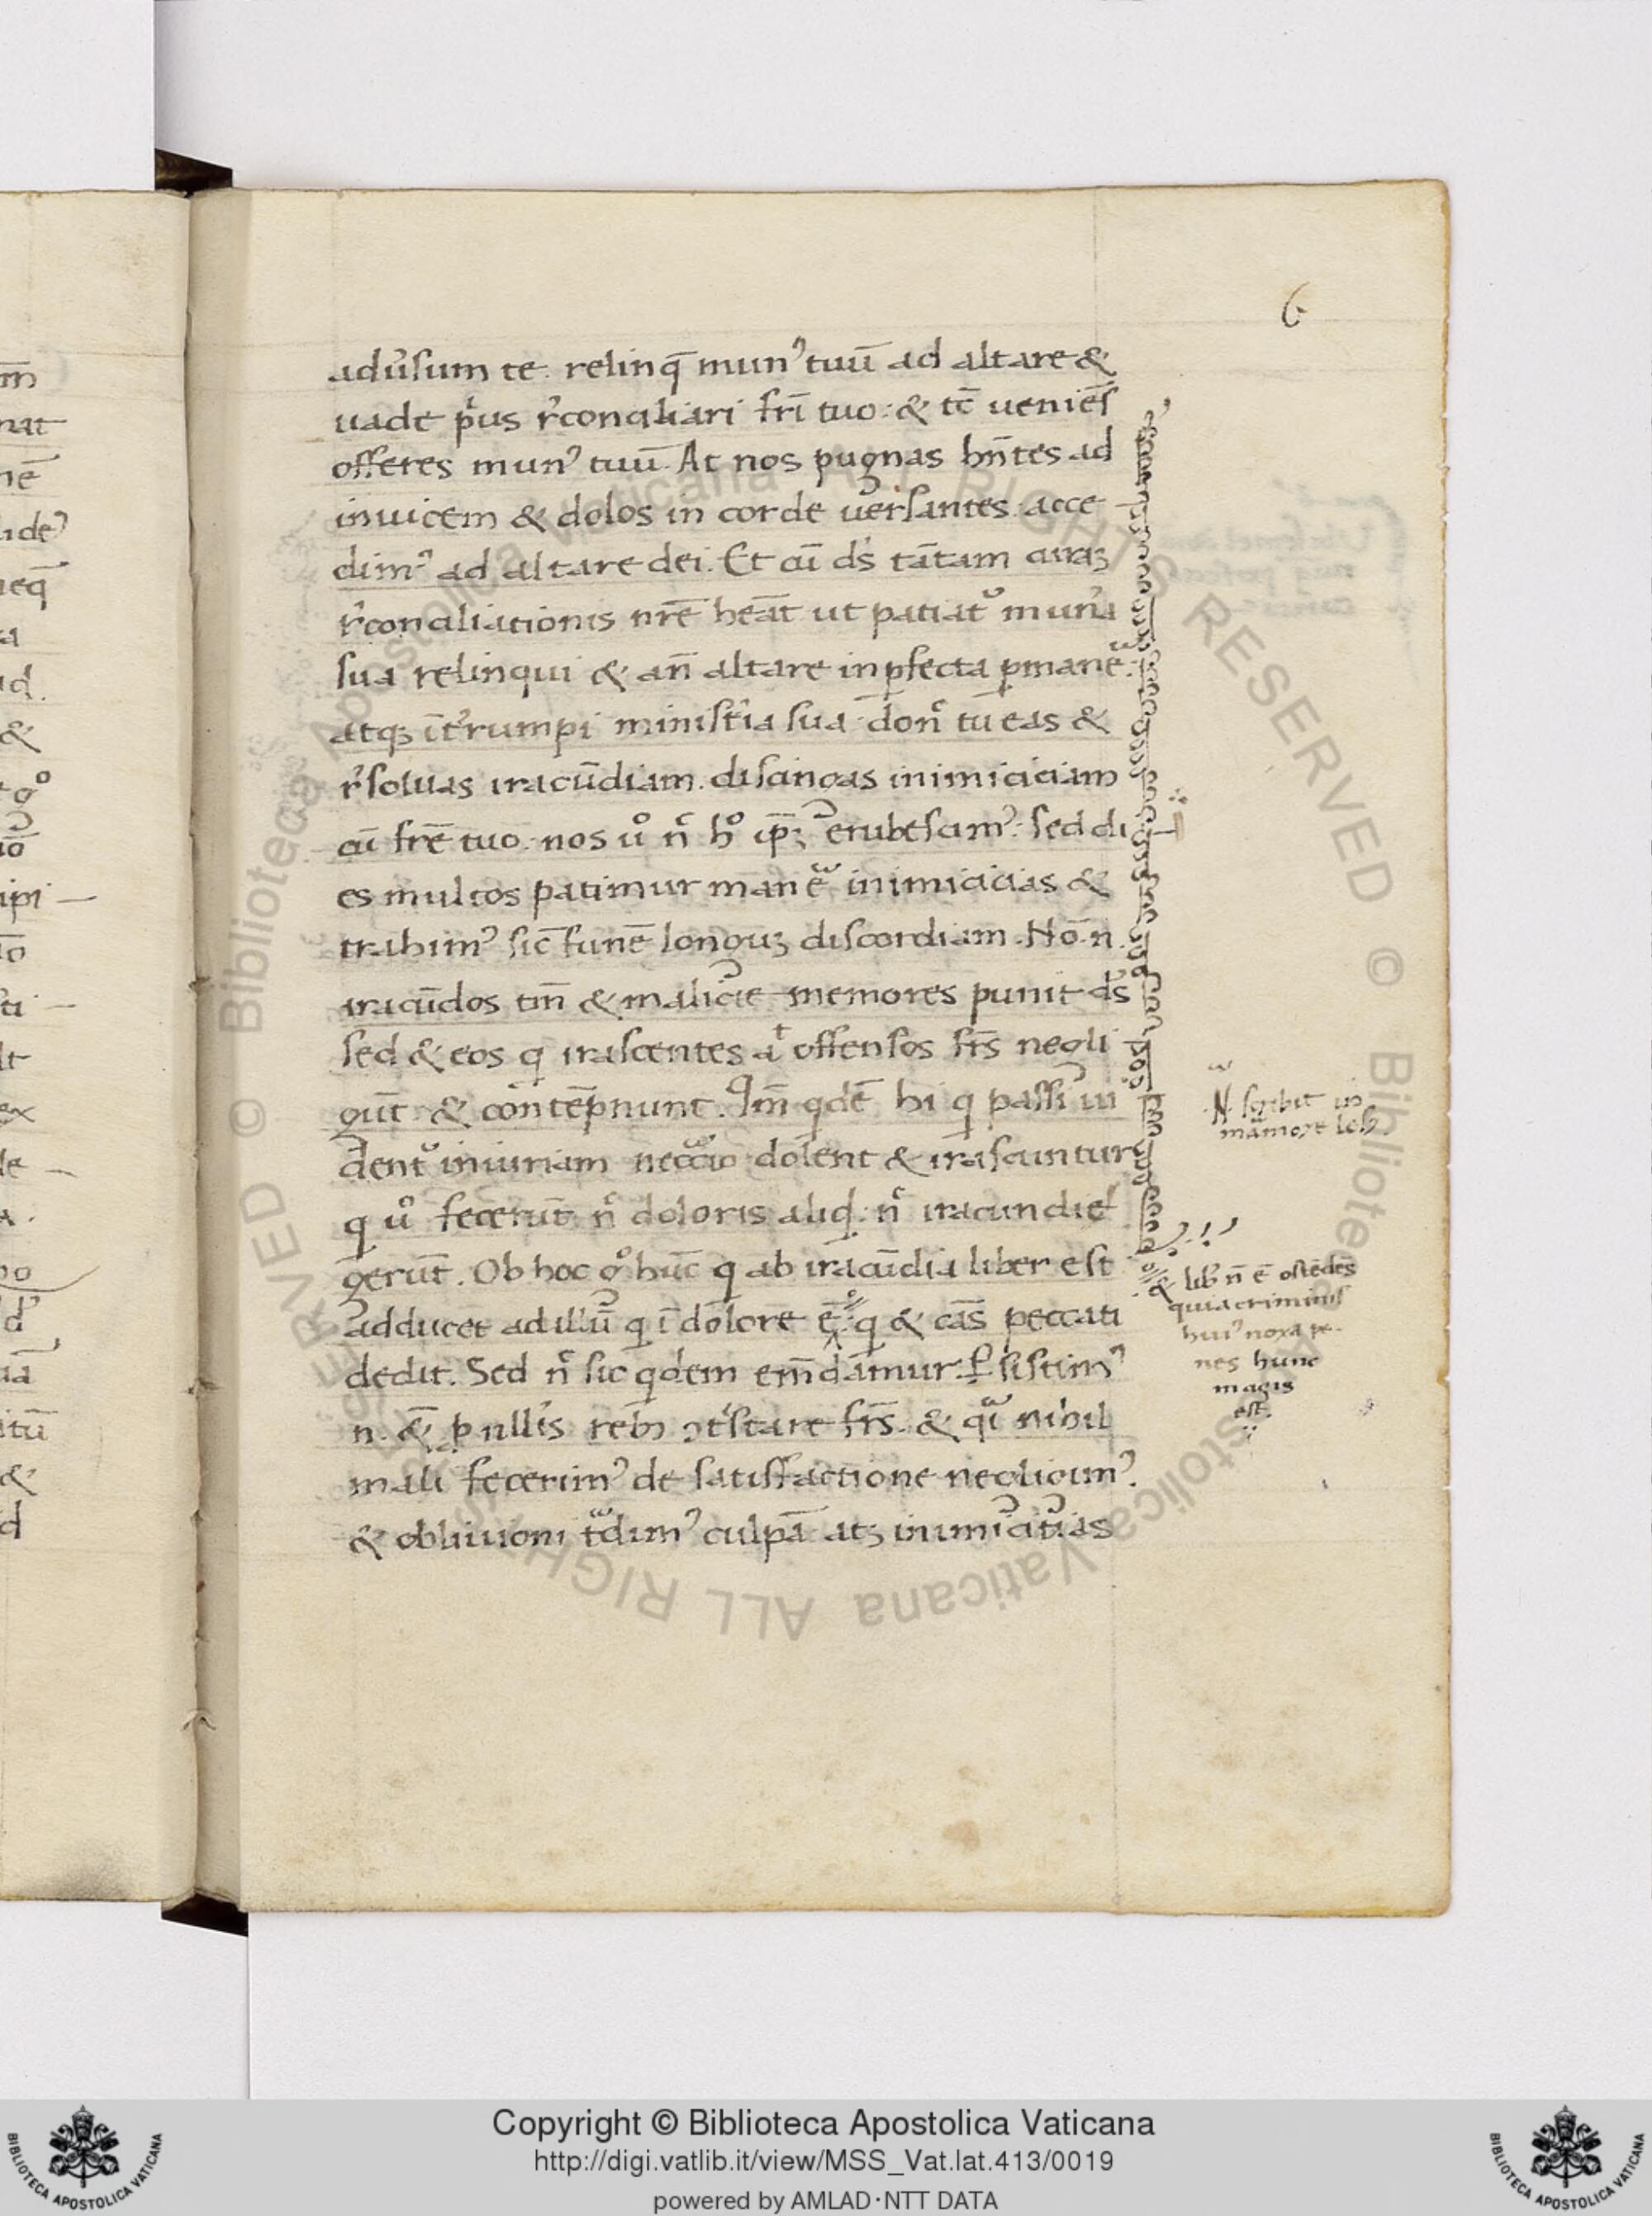 6
adu͛sum te. relinq̄ mun᾽ tuū ad altare &
uade pͥus r᾽conciliari fr̄i tuo: & tc̄ ueniēs
offeres mun᾽ tuū. At nos pugnas hn̄tes ad
inuicem & dolos in corde uersantes acce
dim᾽ ad altare dei. Et cū ds̄ tātam curaꝫ
r᾽conciliationis nr̄e heāt ut patiat᷑ mun᾽a
sua relinqui & an̄ altare inꝑfecta ꝑmanē.
atqꝫ īt᾽rumpi minist᾽ia sua. don̄ tu eas &
r᾽soluas iracūdiam. discingas inimiciciam
cū fr̄e tuo. nos uͦ nͨ hͦ ip̄ꝫ erubescim᾽. sed di
es multos patimur manē inimicicias &
trahim᾽ sic̄ funē longuꝫ discordiam. Nō .n.
iracūdos tm̄ & malicie memores punit ds̄
sed & eos q irascentes aͭ offensos fr̄s negli
gūt & contēpnunt. Im̄ qdē hi q passi ui
dent᷑ iniuriam neccͣio dolent & irascuntur
q uͦ fecerūt nͨ doloris aliqd. nͨ iracundie
gerūt. Ob hoc gͦ hūc q ab iracūdia liber est
adducet ad illū q ī dolore ē. q & cās peccati
dedit. Sed nͨ sic qdem em̄damur.
n. & ꝓ nllis reb᾽ ꝯt᾽stare fr̄s. & qͣi nihil
mali fecerim᾽ de satisfactione negligim᾽.
& obliuioni tͣdim᾽ culpā atꝫ inimicitias
.N. scribit in
mͣmore les᾽
& lib᾽ n̄ ē ostēdēs
quia criminis
hui᾽ noxa pe-
nes hunc
magis
est.
Copyright © Biblioteca Apostolica Vaticana
http://digi.vatlib.it/view/MSS_Vat.lat.413/0019
powered by AMLAD·NTT DATA
BIBLIOTECA APOSTOLICA VATICANA
BIBLIOTECA APOSTOLICA VATICANA